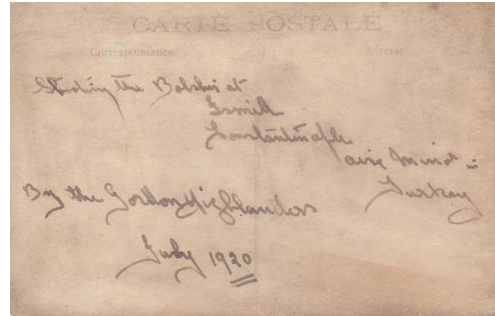 CARTE POSTALE
Correspondance Adresse
the Bolshis at
Ismid
Constantinople
Minor
Turkey
By the Gordon Highlanders
July 1920